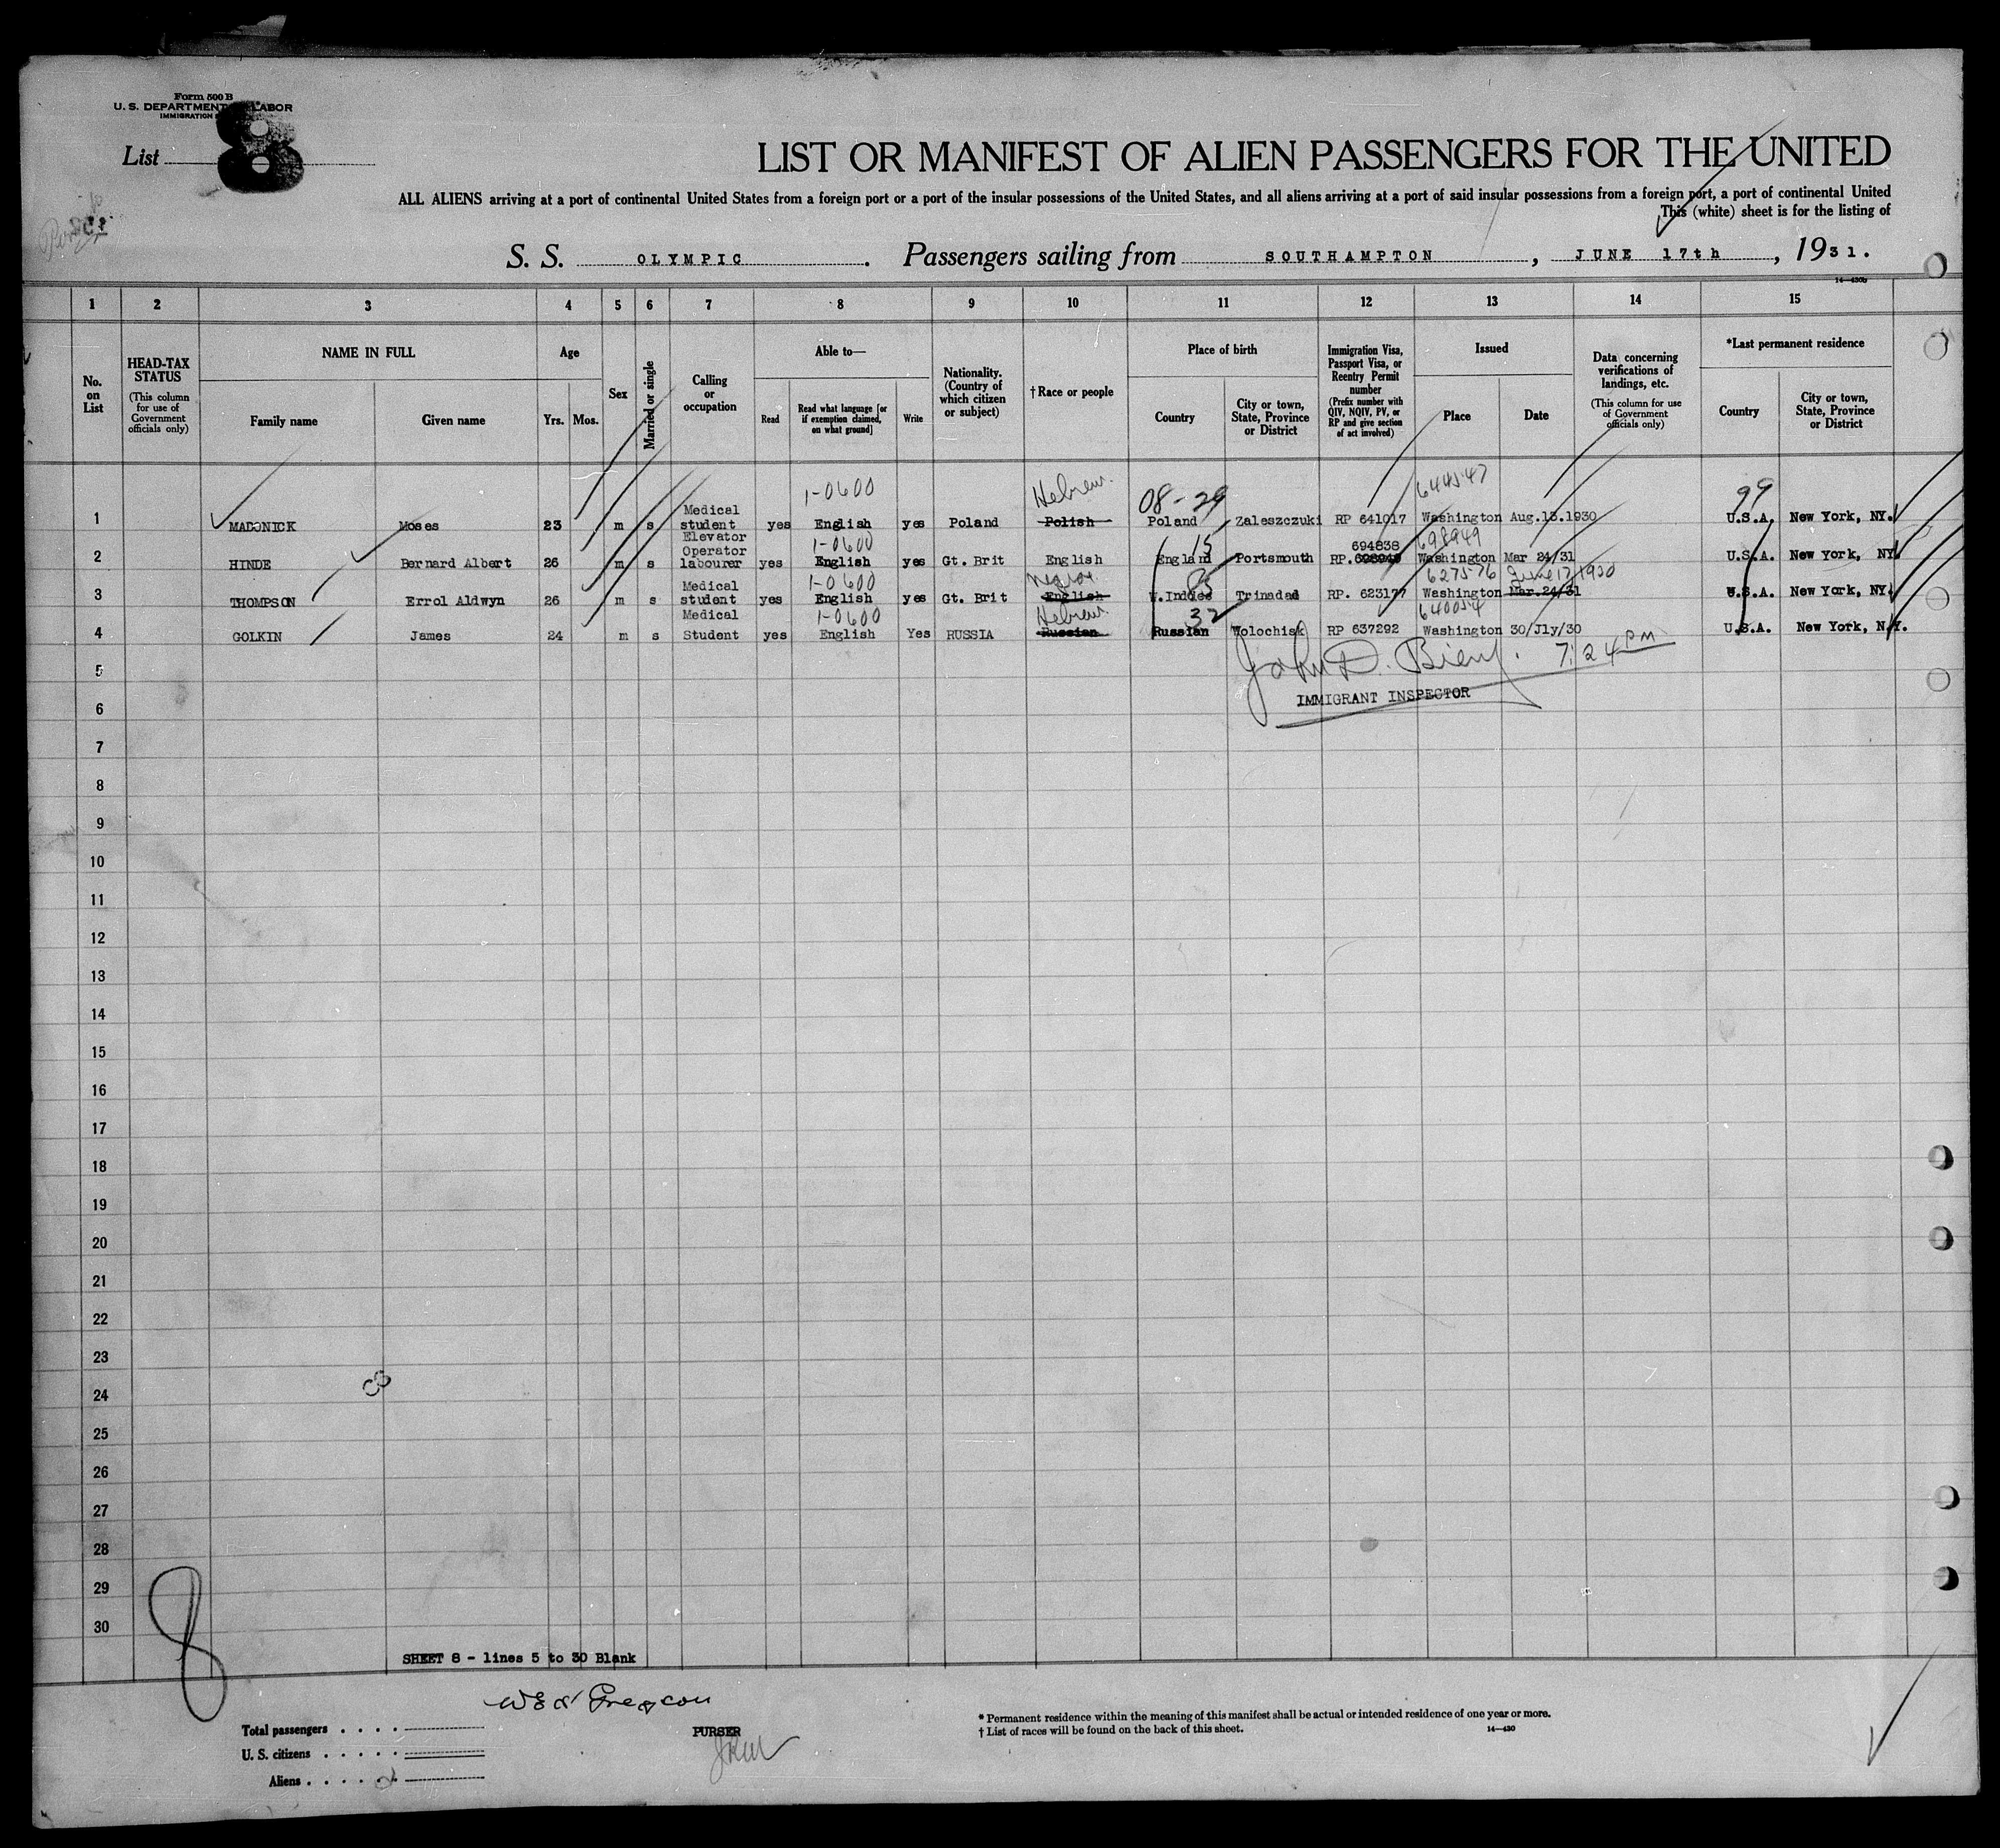 Form 500 B
U. S. DEPARTMENT LABOR
IMMIGRATION
List 8
LIST OR MANIFEST OF ALIEN PASSENGERS FOR THE UNITED
ALL ALIENS arriving at a port of continental United States from a foreign port or a port of the insular possessions of the United States, and all aliens arriving at a port of said insular possessions from a foreign port, a port of continental United
This (white) sheet is for the listing of
S. S. OLYMPIC. Passengers sailing from SOUTHAMPTON, JUNE 17th, 1931.
14—430b
1 2 3 4 5 6 7 8 9 10 11 12 13 14 15
No. on List
HEAD-TAX STATUS
(This column for use of Government officials only)
NAME IN FULL
Family name
Given name
Age
Yrs.
Mos.
Sex
Married or single
Calling or occupation
Able to—
Read
Read what language [or if exemption claimed, on what ground]
Write
Nationality. (Country of which citizen or subject)
† Race or people
Place of birth
Country
City or town, State, Province or District
Immigration Visa, Passport Visa, or Reentry Permit number
(Prefix number with QIV, NQIV, PV, or RP and give section of act involved)
Issued
Place
Date
Data concerning verifications of landings, etc.
(This column for use of Government officials only)
*Last permanent residence
Country
City or town, State, Province or District
1-0600 Hebrew. 08-29 644547 99
1 MADONICK Moses 23 m s Medical student yes English yes Poland Polish Poland Zaleszczuki RP 641017 Washington Aug.13.1930 U.S.A. New York, NY.
1-0600 15 694838 698949
2 HINDE Bernard Albert 26 m s Elevator Operator labourer yes English yes Gt. Brit English England Portsmouth RP. Washington Mar 24/31 U.S.A. New York, NY
1-0600 Negro. 85 627576 June 17/1930
3 THOMPSON Errol Aldwyn 26 m s Medical student yes English yes Gt. Brit English W.Indies Trinadad RP. 623177 Washington Mar.24/31 U.S.A. New York, NY.
1-0600 Hebrew. 32 640054
4 GOLKIN James 24 m s Medical Student yes English Yes RUSSIA Russian Russian Wolochisk RP 637292 Washington 30/Jly/30 U.S.A. New York, N.Y.
5
John D. 7:24 PM
6
IMMIGRANT INSPECTOR
7
8
9
10
11
12
13
14
15
16
17
18
19
20
21
22
23
24
25
26
27
28
29
30
8
SHEET 8 - lines 5 to 30 Blank
Total passengers
U. S. citizens
Aliens
PURSER
* Permanent residence within the meaning of this manifest shall be actual or intended residence of one year or more.
† List of races will be found on the back of this sheet.
14—430